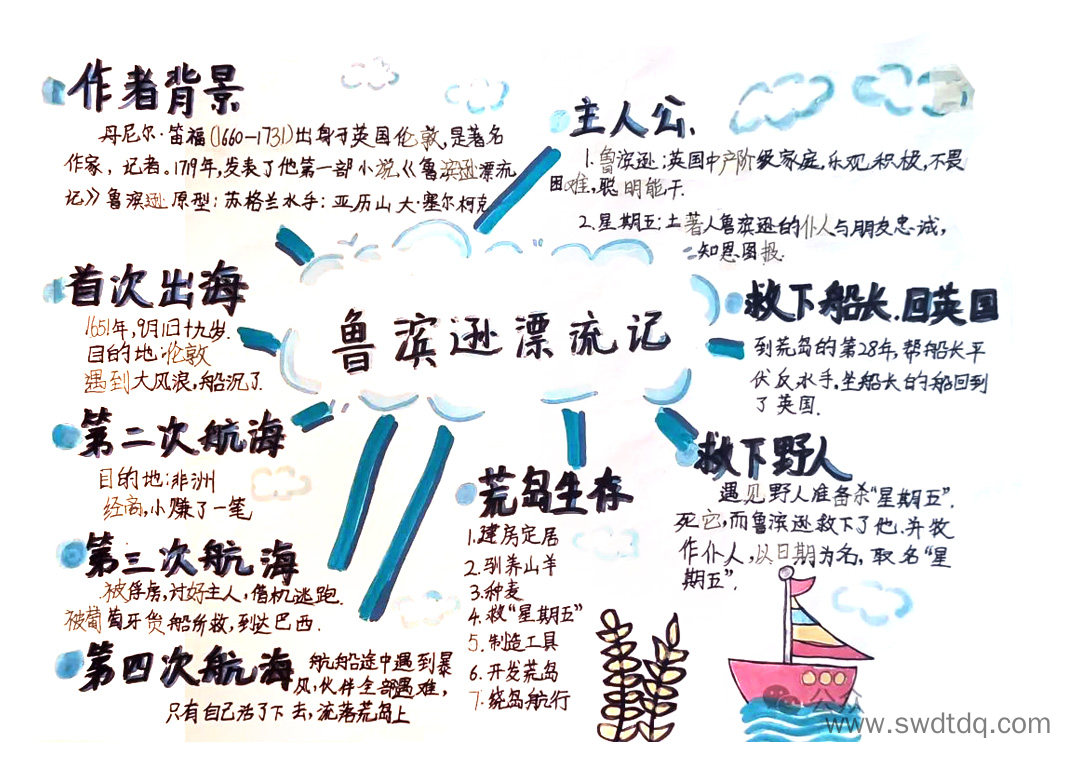 作者背景
丹尼尔·笛福(1660-1731)出身于英国伦敦,是著名
作家,记者。1719年,发表了他第一部小说《鲁滨逊漂流
记》鲁滨逊原型:苏格兰水手:亚历山大·塞尔柯克
主人公.
1.鲁滨逊:英国中产阶级家庭,乐观积极,不畏
困难,聪明能干.
2.星期五:土著人鲁滨逊的仆人与朋友忠诚,
知恩图报.
首次出海
1651年,9月1日十九岁.
目的地:伦敦
遇到大风浪,船沉了.
鲁滨逊漂流记
救下船长.回英国
到荒岛的第28年,帮船长平
伏反水手,坐船长的船回到
了英国.
第二次航海
目的地:非洲
经商,小赚了一笔
第三次航海
被俘虏,讨好主人,借机逃跑.
被葡萄牙货船所救,到达巴西.
第四次航海
航船途中遇到暴
风,伙伴全部遇难,
只有自己活了下去,流落荒岛上
荒岛生存
1.建房定居
2.驯养山羊
3.种麦
4.救“星期五”
5.制造工具
6.开发荒岛
7.绕岛航行
救下野人
遇见野人准备杀“星期五”.
死它,而鲁滨逊救下了他.并收
作仆人,以日期为名,取名“星
期五”.
公众
www.swdtdq.com